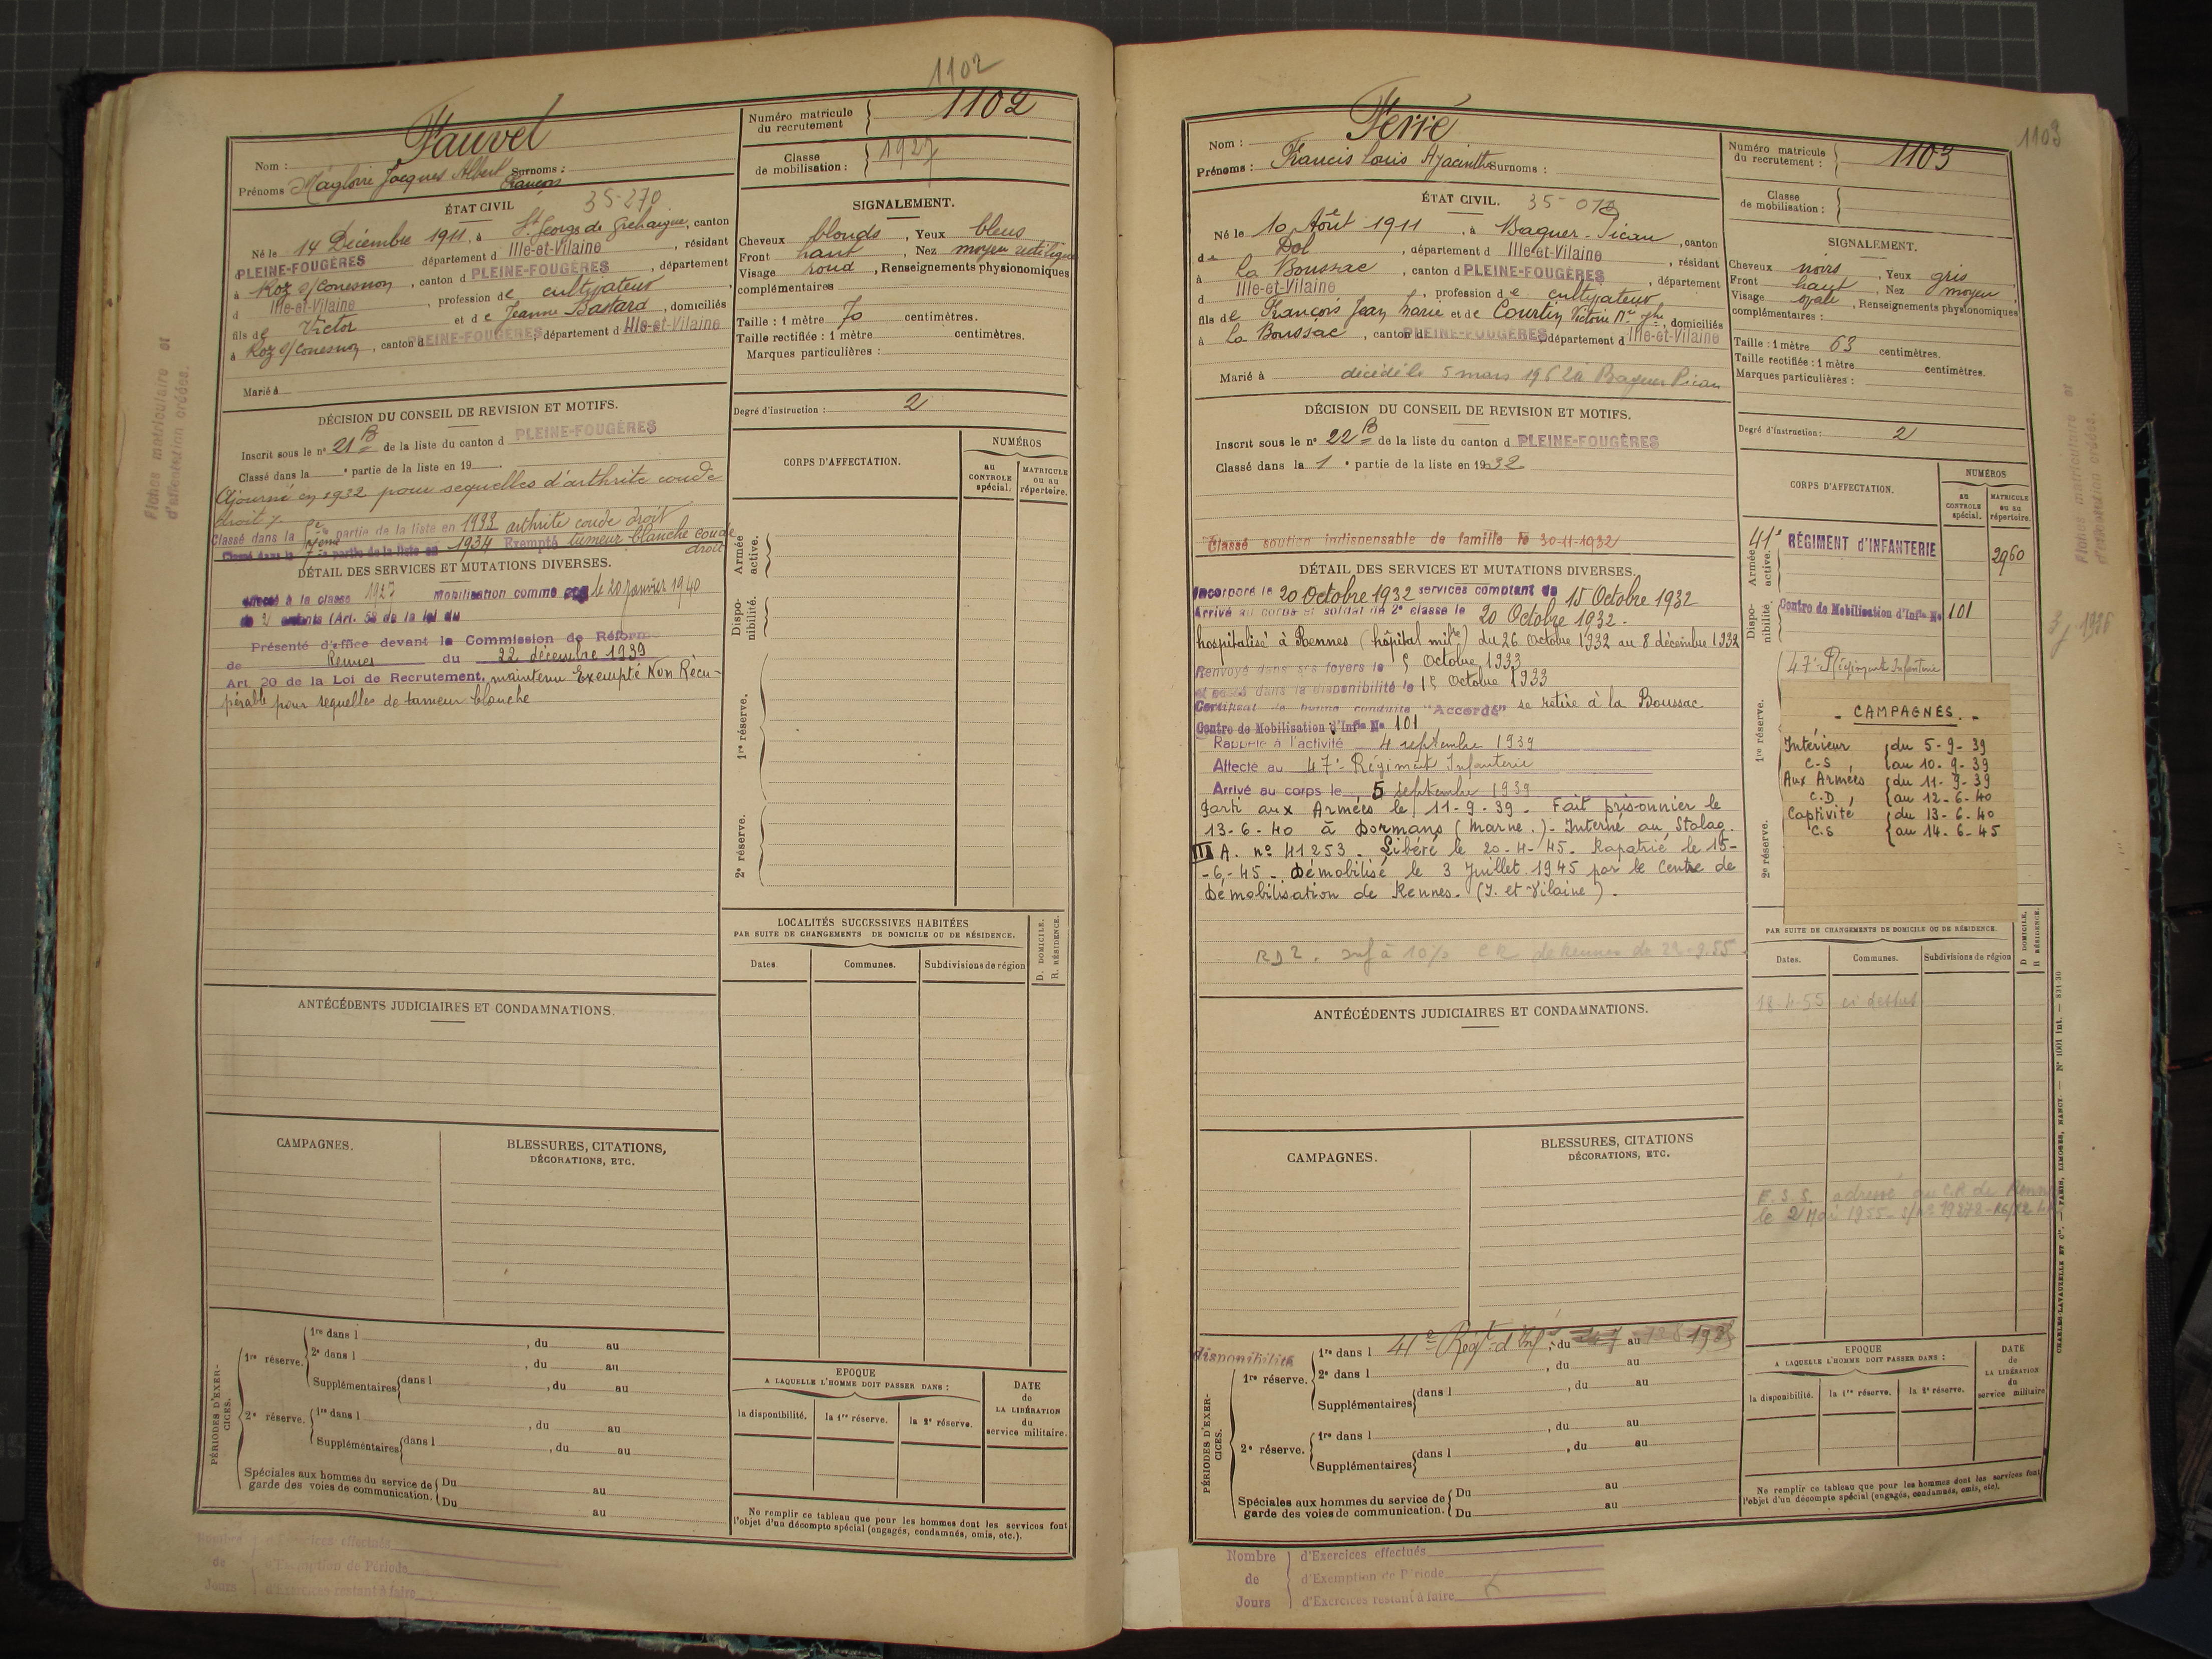 1102
1102
Fauvel
Nom :
Prénoms Magloire Jacques Albert Surnoms :
François
Numéro matricule
du recrutement
Classe
de mobilisation :
1927
ÉTAT CIVIL
35-270
Né le 14 Décembre 1911, à St Georges de Grehaigne, canton
d PLEINE-FOUGÈRES département d Ille-et-Vilaine, résidant
à Roz s/ Couesnon, canton d PLEINE-FOUGÈRES, département
d Ille-et-Vilaine, profession de cultivateur
fils de Victor et de Jeanne Bastard, domiciliés
à Roz s/ Couesnon, canton d PLEINE-FOUGÈRES, département d Ille-et-Vilaine
Marié à
SIGNALEMENT.
Cheveux blonds, Yeux bleus
Front haut, Nez moyen rectiligne
Visage rond, Renseignements physionomiques
complémentaires
Taille : 1 mètre 70 centimètres.
Taille rectifiée : 1 mètre centimètres.
Marques particulières :
Degré d'instruction : 2
DÉCISION DU CONSEIL DE REVISION ET MOTIFS.
Inscrit sous le n° 21 B de la liste du canton d PLEINE-FOUGÈRES
Classé dans la e partie de la liste en 19
Ajourné en 1932 pour sequelles d'arthrite coude
droit
Classé dans la partie de la liste en 1933 arthrite coude droit
Classé dans la partie de la liste en 1934 Exempté tumeur blanche coude
droit
DÉTAIL DES SERVICES ET MUTATIONS DIVERSES.
à la classe 1927 Mobilisation comme le 20 janvier 1940
de 2 enfants (Art. 58 de la loi du
Présenté d'office devant la Commission de Réforme
de Rennes du 22 décembre 1939
Art. 20 de la Loi de Recrutement, maintenu Exempté Non Récu-
pérable pour sequelles de tumeur blanche
CORPS D'AFFECTATION.
NUMÉROS
au
CONTROLE
spécial.
MATRICULE
ou au
répertoire.
Armée
active.
Dispo-
nibilité.
1re réserve.
2e réserve.
LOCALITÉS SUCCESSIVES HABITÉES
PAR SUITE DE CHANGEMENTS DE DOMICILE OU DE RÉSIDENCE.
D. DOMICILE.
R. RÉSIDENCE.
Dates.
Communes.
Subdivisions de région
ANTÉCÉDENTS JUDICIAIRES ET CONDAMNATIONS.
CAMPAGNES.
BLESSURES, CITATIONS,
DÉCORATIONS, ETC.
PÉRIODES D'EXER-
CICES.
1re réserve.
1re dans l , du au
2e dans l , du au
Supplémentaires dans l , du au
2e réserve.
1re dans l , du au
Supplémentaires dans l , du au
Spéciales aux hommes du service de
garde des voies de communication.
Du au
Du au
EPOQUE
A LAQUELLE L'HOMME DOIT PASSER DANS :
la disponibilité.
la 1re réserve.
la 2e réserve.
DATE
de
LA LIBÉRATION
du
service militaire.
Ne remplir ce tableau que pour les hommes dont les services font
l'objet d'un décompte spécial (engagés, condamnés, omis, etc.).
Nombre
de
Jours
d'Exercices effectués
d'Exemption de Période
d'Exercices restant à faire
Fiches matriculaire et
d'affectation créées.
1103
1103
Ferré
Nom :
Prénoms : Francis Louis Hyacinthe Surnoms :
Numéro matricule
du recrutement :
Classe
de mobilisation :
ÉTAT CIVIL.
35-013
Né le 10 Août 1911, à Baguer-Pican, canton
de Dol, département d Ille-et-Vilaine, résidant
à La Boussac, canton d PLEINE-FOUGÈRES, département
d Ille-et-Vilaine, profession de cultivateur
fils de François Jean Marie et de Courtin Victoire Mie Jhe, domiciliés
à La Boussac, canton d PLEINE-FOUGÈRES, département d Ille-et-Vilaine
Marié à
décédé le 5 mars 1962 à Baguer Pican
SIGNALEMENT.
Cheveux noirs, Yeux gris
Front haut, Nez moyen
Visage ovale, Renseignements physionomiques
complémentaires :
Taille : 1 mètre 63 centimètres.
Taille rectifiée : 1 mètre centimètres.
Marques particulières :
Degré d'instruction : 2
DÉCISION DU CONSEIL DE REVISION ET MOTIFS.
Inscrit sous le n° 22 B de la liste du canton d PLEINE-FOUGÈRES
Classé dans la 1e partie de la liste en 1932
Classé soutien indispensable de famille le 30-11-1932
DÉTAIL DES SERVICES ET MUTATIONS DIVERSES.
Incorporé le 20 Octobre 1932 services comptant du 15 Octobre 1932
Arrivé au corps et soldat de 2e classe le 20 Octobre 1932.
hospitalisé à Rennes (hôpital milre) du 26 Octobre 1932 au 8 décembre 1932
Renvoyé dans ses foyers le 5 Octobre 1933
et passé dans la disponibilité le 15 Octobre 1933
Certificat de bonne conduite "Accordé" se retire à la Boussac
Centre de Mobilisation d'Infie N° 101
Rappelé à l'activité 4 septembre 1939
Affecté au 47e Régiment Infanterie
Arrivé au corps le 5 septembre 1939
Parti aux Armées le 11-9-39. Fait prisonnier le
13-6-40 à Dormans (Marne.). Interné au Stalag
III A. n° 41253. Libéré le 20-4-45. Rapatrié le 15-
-6-45. Démobilisé le 3 Juillet 1945 par le Centre de
Démobilisation de Rennes. (I. et Vilaine).
RD2. inf à 10% CR de Rennes du
CORPS D'AFFECTATION.
NUMÉROS
au
CONTROLE
spécial.
MATRICULE
ou au
répertoire.
Armée
active.
41e RÉGIMENT D'INFANTERIE
2960
Dispo-
nibilité.
Centre de Mobilisation d'Infie N° 101
47e Régiment Infanterie
1re réserve.
2e réserve.
- CAMPAGNES. -
Intérieur du 5-9-39
C-S au 10-9-39
Aux Armées du 11-9-39
C.D. au 12-6-40
Captivité du 13-6-40
C.S au 14-6-45
PAR SUITE DE CHANGEMENTS DE DOMICILE OU DE RÉSIDENCE.
D DOMICILE.
R RÉSIDENCE.
Dates.
Communes.
Subdivisions de région
18-4-55 ci dessus
ANTÉCÉDENTS JUDICIAIRES ET CONDAMNATIONS.
CAMPAGNES.
BLESSURES, CITATIONS
DÉCORATIONS, ETC.
E.S.S. adressé au C.R. de Rennes
le 2 Mai 1955
PÉRIODES D'EXER-
CICES.
disponibilité
1re réserve.
1re dans l 41e Régt d'Inf, du au
2e dans l , du au
Supplémentaires dans l , du au
2e réserve.
1re dans l , du au
Supplémentaires dans l , du au
Spéciales aux hommes du service de
garde des voies de communication.
Du au
Du au
EPOQUE
A LAQUELLE L'HOMME DOIT PASSER DANS :
la disponibilité.
la 1re réserve.
la 2e réserve.
DATE
de
LA LIBÉRATION
du
service militaire
Ne remplir ce tableau que pour les hommes dont les services font
l'objet d'un décompte spécial (engagés, condamnés, omis, etc).
Nombre
de
Jours
d'Exercices effectués
d'Exemption de Période
d'Exercices restant à faire
CHARLES-LAVAUZELLE ET Cie. — PARIS, LIMOGES, NANCY. — N° 1001 Int. — 831-30
Fiches matriculaire et
d'affectation créées.